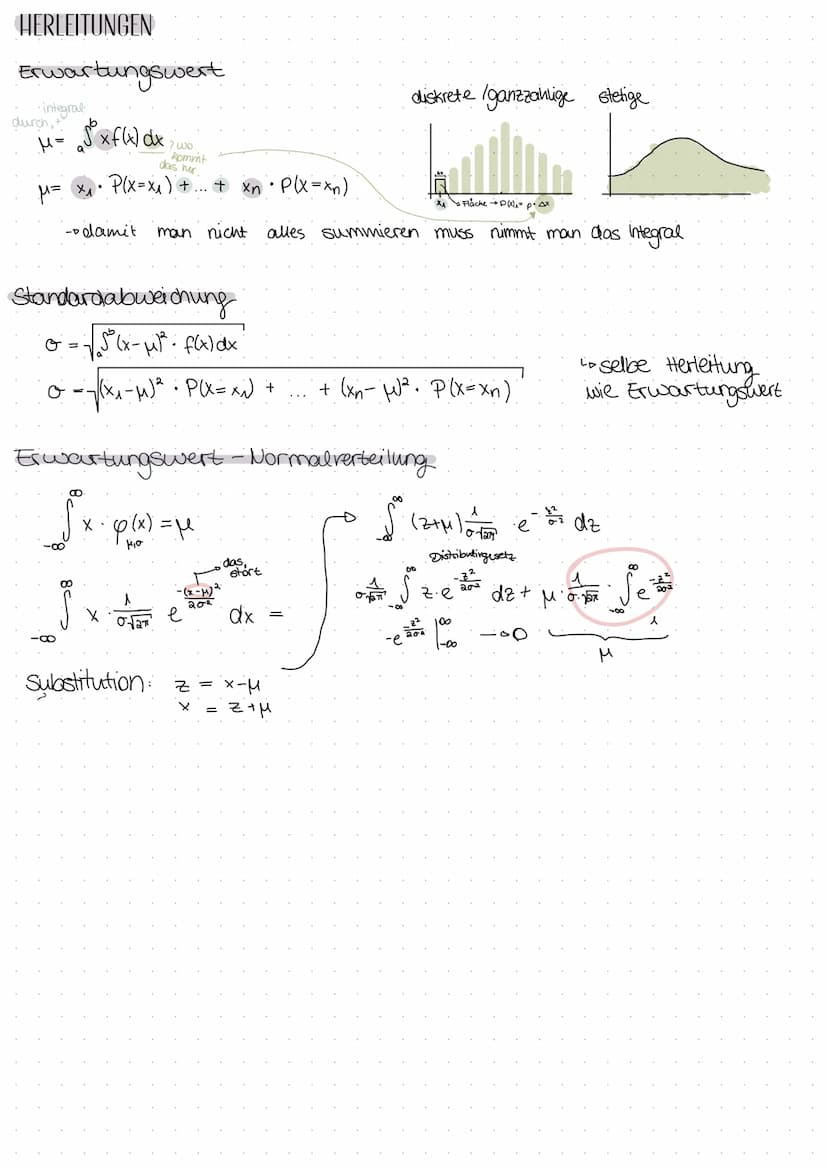 HERLEITUNGEN
Erwartungswert
integral
durch, +
μ = ₐ∫ᵇ x f(x) dx
? wo
kommt
das her
μ = x₁ · P(X=x₁) + ... + xₙ · P(X=xₙ)
diskrete / ganzzahlige
stetige
Δx
x₁
Fläche → P(x)₁ = p · Δx
→ damit man nicht alles summieren muss nimmt man das Integral
Standardabweichung
σ = √(ₐ∫ᵇ (x-μ)² · f(x) dx)
σ = √((x₁-μ)² · P(X=x₁) + ... + (xₙ-μ)² · P(X=xₙ))
↳ selbe Herleitung
wie Erwartungswert
Erwartungswert – Normalverteilung
∫_{-∞}^{∞} x · φ_{μ,σ}(x) = μ
das
stört
∫_{-∞}^{∞} x · 1/(σ√2π) e^{-(x-μ)²/2σ²} dx =
Substitution: z = x-μ
x = z+μ
∫_{-∞}^{∞} (z+μ) 1/(σ√2π) · e^{-z²/σ²} dz
1/(σ√2π) ∫_{-∞}^{∞} z · e^{-z²/2σ²} dz + μ · 1/(σ√2π) · ∫_{-∞}^{∞} e^{-z²/2σ²}
-e^{-z²/2σ²} |_{-∞}^{∞} → 0
1
μ